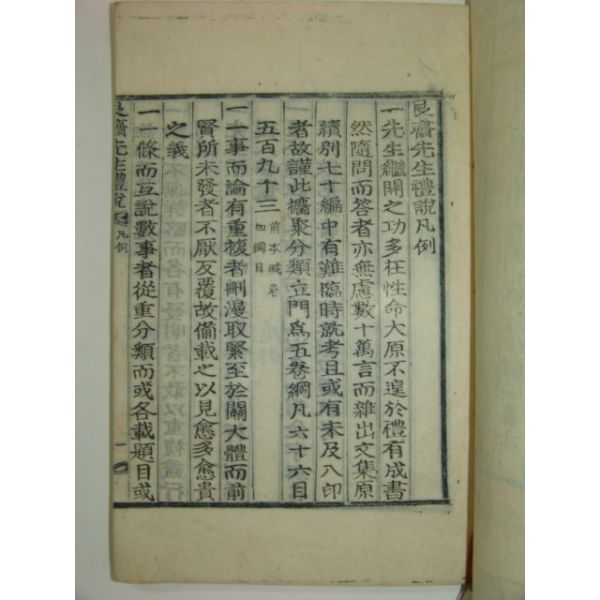 艮齋先生禮說凡例
一先生繼開之功多在性命大原不遑於禮有成書
然隨問而答者亦無慮數十萬言而雜出文集原
續別七十編中有難臨時就考且或有未及入印
者故謹此攟聚分類立門爲五卷綱凡六十六目
五百九十三
前本域卷
加綱目
一一事而論有重複者刪漫取緊至於關大體而前
賢所未發者不厭反覆故備載之以見愈多愈貴
之義
一一條而互說數事者從重分類而或各載題目或
艮齋先生禮說 凡例
一